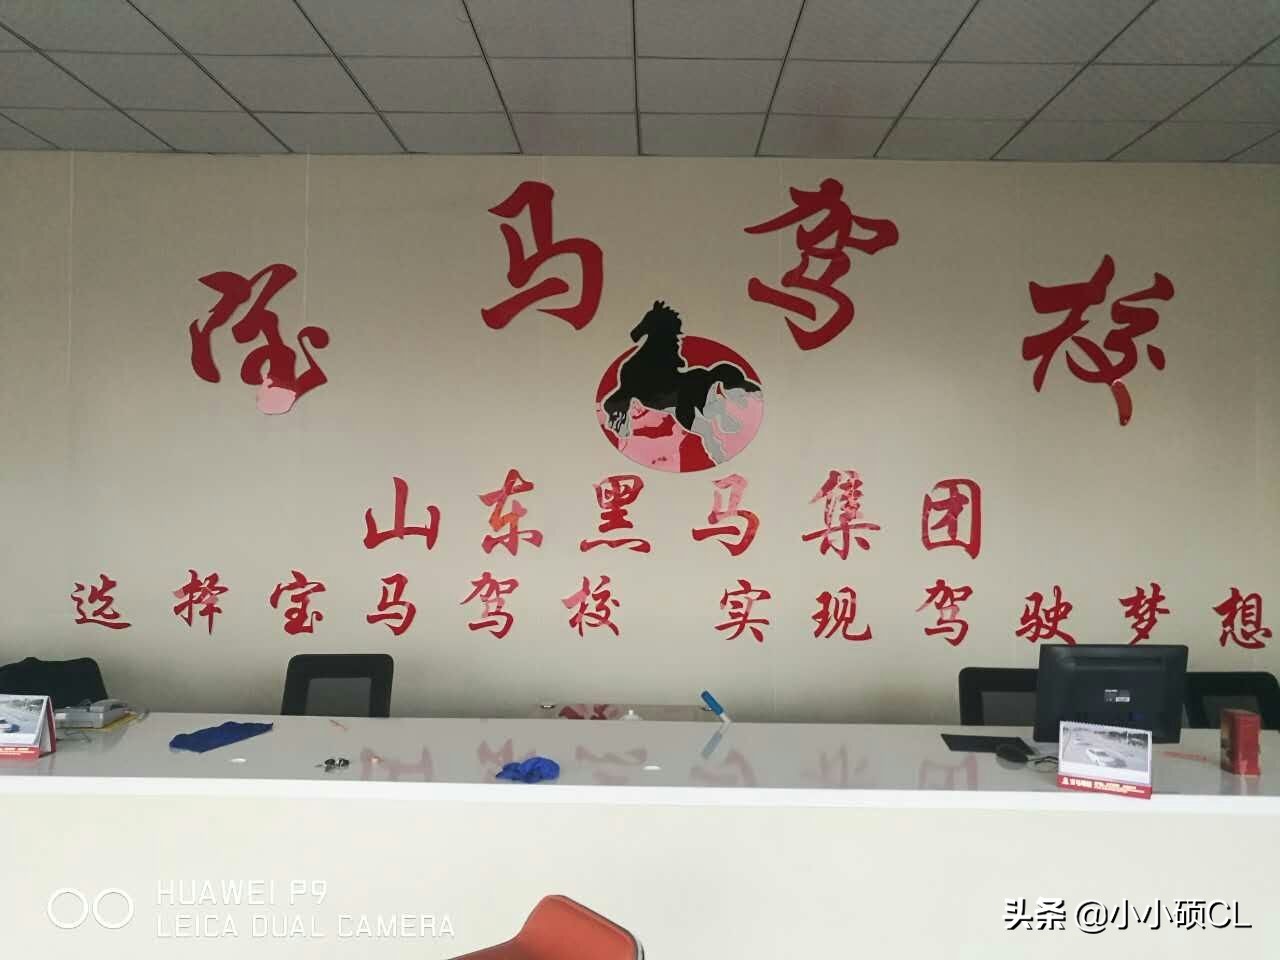 宝马驾校
山东黑马集团
选择宝马驾校 实现驾驶梦想
HUAWEI P9
LEICA DUAL CAMERA
头条 @小小硕CL